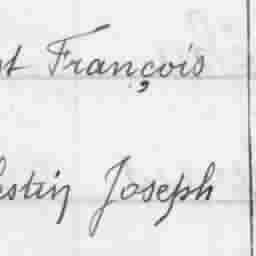 st François
estin Joseph